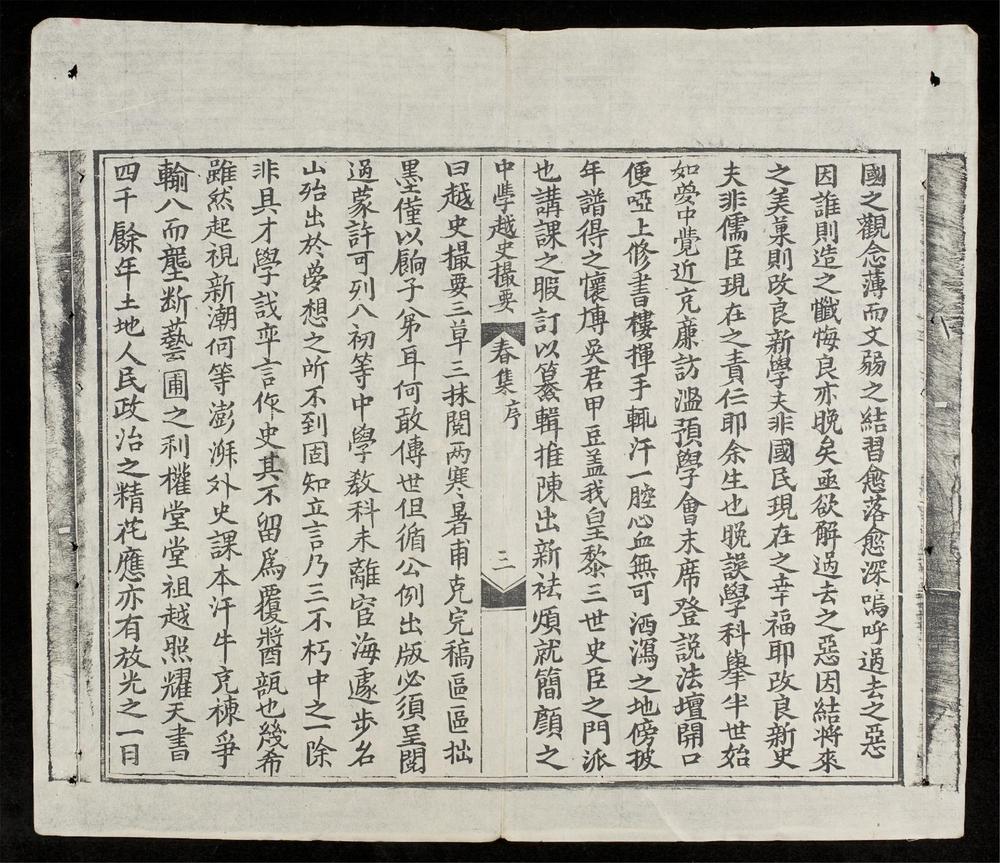 國之觀念薄而文弱之結習愈落愈深嗚呼過去之惡
因誰則造之懺悔良亦晚矣亟欲解過去之惡因結將來
之美菓則改良新學夫非國民現在之幸福耶改良新史
夫非儒臣現在之責任耶余生也晚誤學科舉半世始
如夢中覺近充廉訪濫預學會末席登說法壇開口
便啞上修書樓揮手輒汗一腔心血無可洒瀉之地傍披
年譜得之懷慱吳君甲豆盖我皇黎三世史臣之門派
也講課之暇訂以纂輯推陳出新祛煩就簡顏之
中學越史撮要
春集序
三
曰越史撮要三草三抹閱兩寒暑甫克完稿區區拙
墨僅以餉子弟耳何敢傳世但循公例出版必須呈閱
過蒙許可列入初等中學教科未離宦海遽步名
山殆出於夢想之所不到固知立言乃三不朽中之一除
非具才學識卒言作史其不留爲覆醬瓿也幾希
雖然起視新潮何等澎湃外史課本汗牛充棟爭
輸入而壟断藝圃之利權堂堂祖越照耀天書
四千餘年土地人民政治之精花應亦有放光之一日